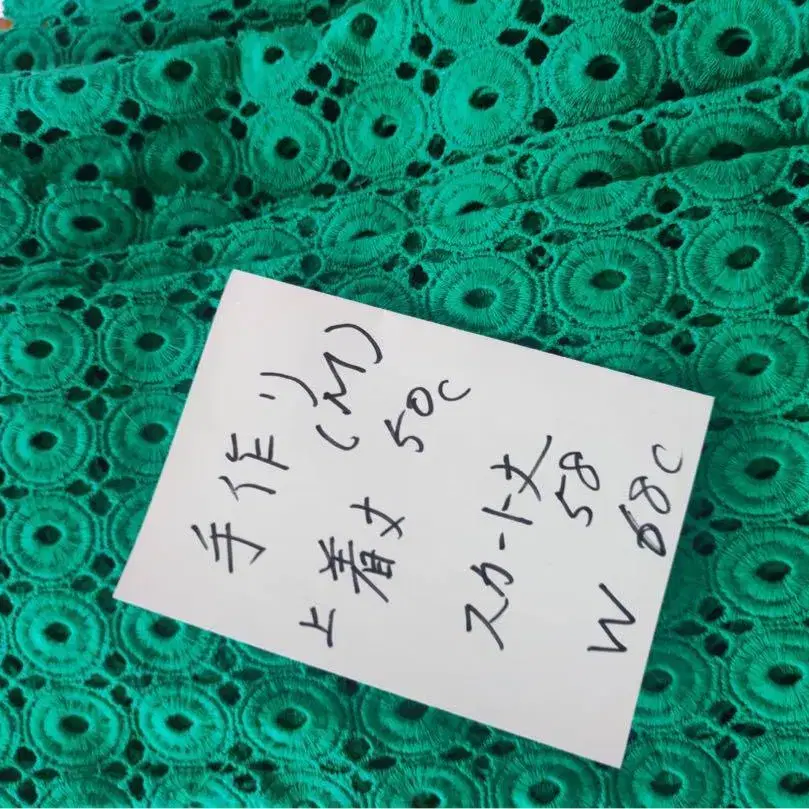 手作り(M)
上着丈 50c
スカート丈 58
W 68c